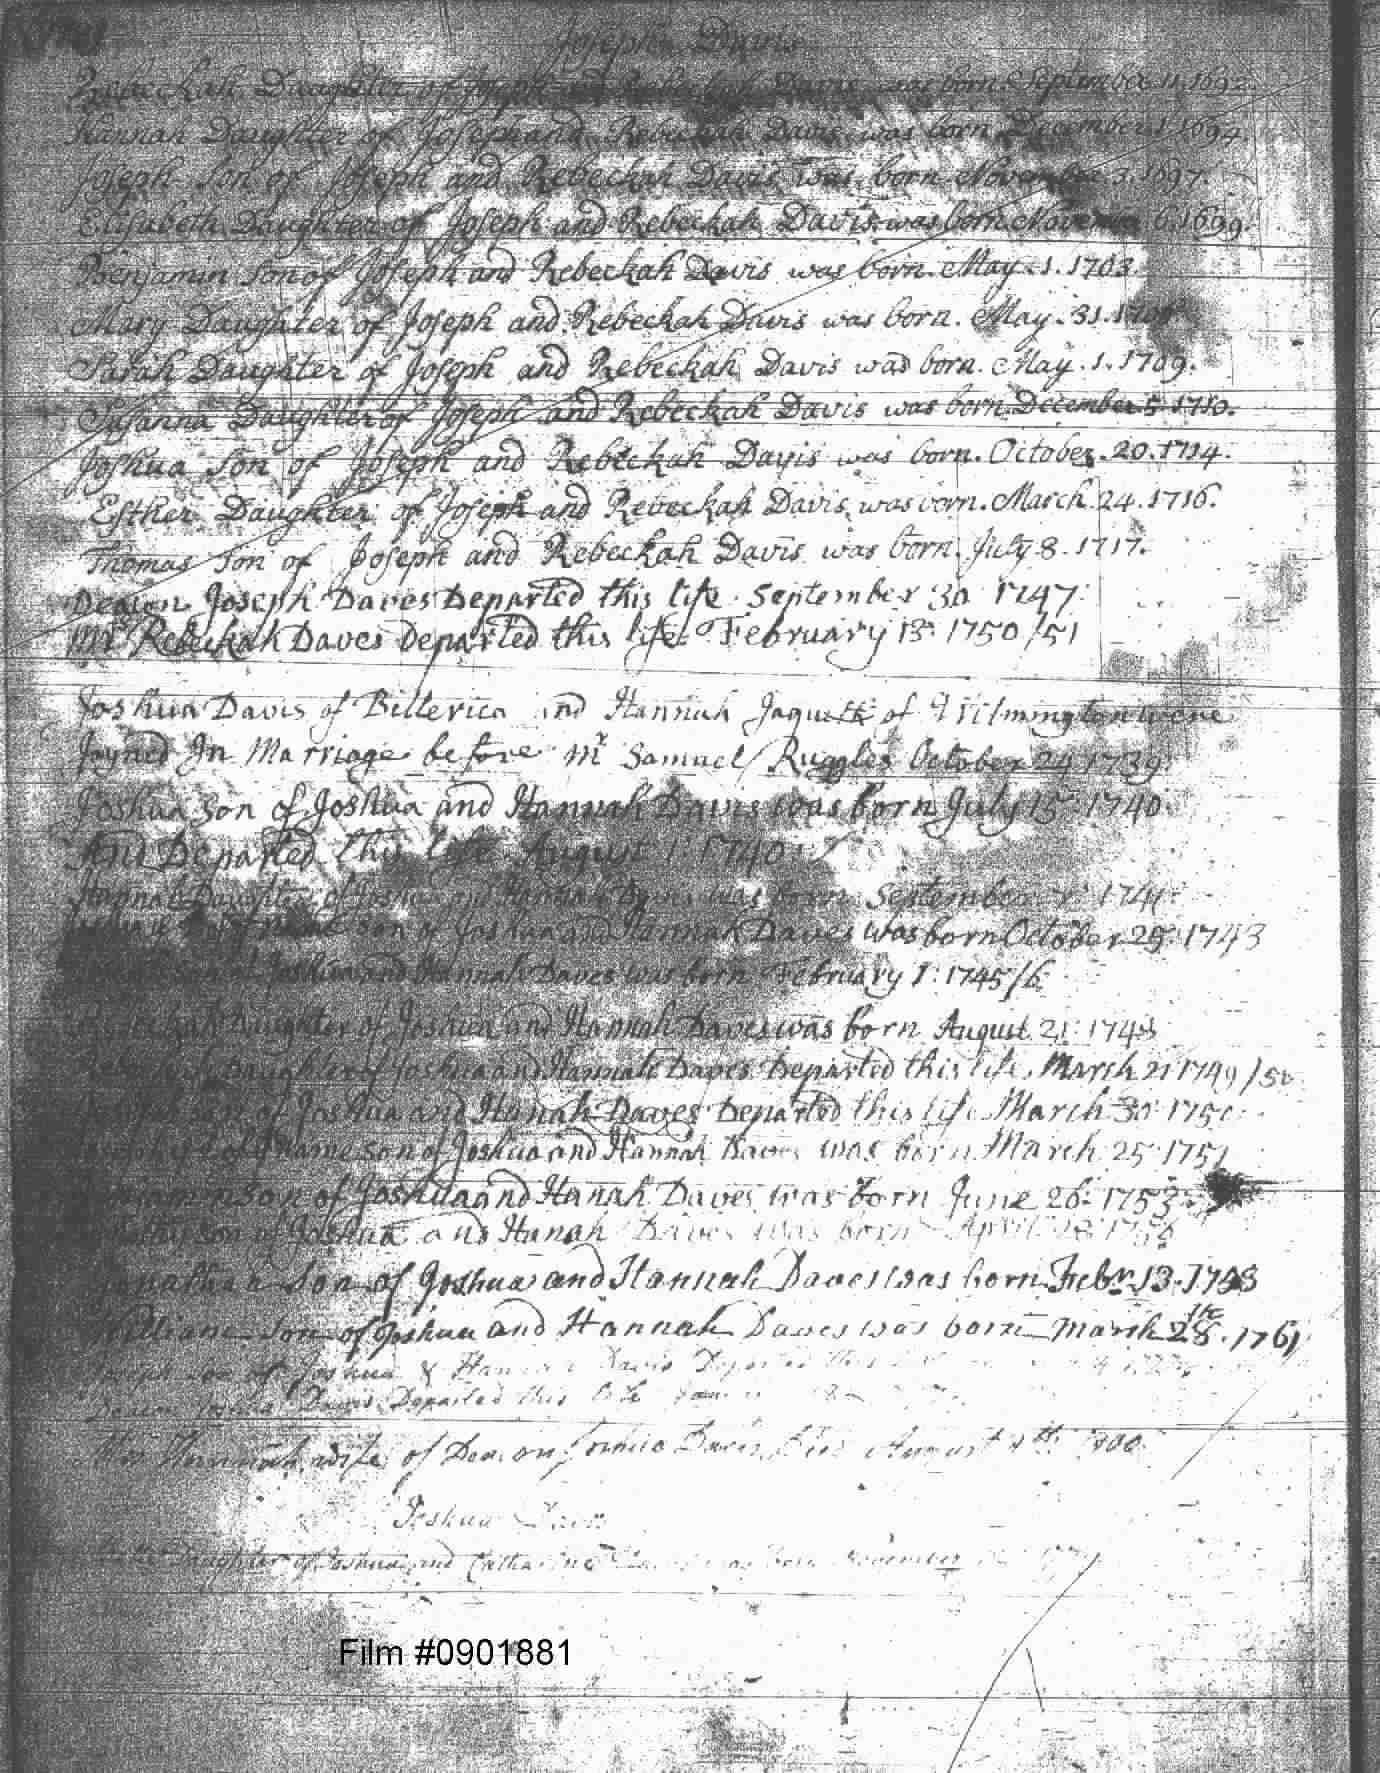 Joseph Davis
Rebeckah Daughter of Joseph and Rebeckah Davis was born September 11. 1692.
Hannah Daughter of Joseph and Rebeckah Davis was born December 1. 1694
Joseph Son of Joseph and Rebeckah Davis was born November 3. 1697.
Elisabeth Daughter of Joseph and Rebeckah Davis was born November 6. 1699.
Benjamin Son of Joseph and Rebeckah Davis was born May. 1. 1703.
Mary Daughter of Joseph and Rebeckah Davis was born. May. 31.
Sarah Daughter of Joseph and Rebeckah Davis was born. May. 1. 1709.
Susanna Daughter of Joseph and Rebeckah Davis was born December 5 1710.
Joshua Son of Joseph and Rebeckah Davis was born. October. 20. 1714.
Esther Daughter of Joseph and Rebeckah Davis was born. March. 24. 1716.
Thomas Son of Joseph and Rebeckah Davis was born. July 8. 1717.
Deacon Joseph Daves Departed this life September 30 1747
Mrs Rebeckah Daves departed this life February 13: 1750/51
Joshua Davis of Billerica and Hannah Jaquith of Wilmington were
Joyned In Marriage before Mr Samuel Ruggles October 24 1739
Joshua son of Joshua and Hannah Davis was born July 15: 1740
And Departed this life August 1: 1740
Hannah Daughter of Joshua and Hannah Davis was born September 1741
son of Joshua and Hannah Daves was born October 29: 1743
of Joshua and Hannah Daves was born February 1: 1745/6
Daughter of Joshua and Hannah Daves was born August 21: 1748
Daughter of Joshua and Hannah Daves Departed this life March 21 1749/50
son of Joshua and Hanah Daves Departed this life March 30: 1750
of ye name son of Joshua and Hannah Daves was born March 25: 1751
Benjamin son of Joshua and Hanah Daves was born June 26: 1753
son of Joshua and Hanah Daves was born April 1756
Jonathan son of Joshua and Hannah Daves was born Febr 13. 1758
William son of Joshua and Hannah Daves was born March 28th. 1761
Joseph son of Joshua & Hannah Davis Departed this
Deacon Joshua Davis Departed this life
Mrs Hannah wife of Deacon Joshua Davis Died August
Joshua Davis
Daughter of Joshua and Catharine was born November
Film #0901881